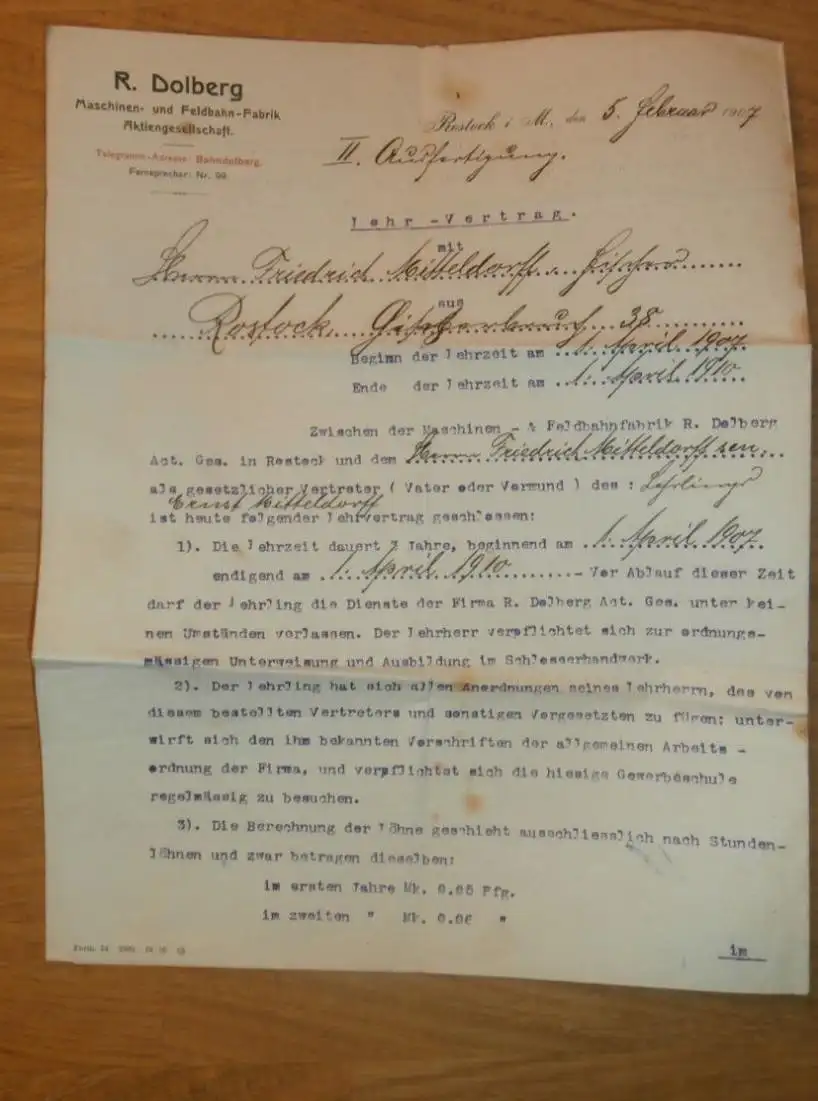 R. Dolberg
Maschinen- und Feldbahn-Fabrik
Aktiengesellschaft.
Telegramm-Adresse: Bahndolberg.
Fernsprecher: Nr. 99.
Rostock i. M., den 5. Februar 1907
II. Ausfertigung.
Lehr-Vertrag.
mit
Herrn Friedrich Mitteldorff, Fischer
aus
Rostock 38
Beginn der Lehrzeit am 1. April 1907
Ende der Lehrzeit am 1. April 1910
Zwischen der Maschinen - & Feldbahnfabrik R. Dolberg
Act. Ges. in Rostock und dem Herrn Friedrich Mitteldorff sen.
als gesetzlicher Vertreter ( Vater oder Vormund ) des : Lehrlings
Ernst Mitteldorff
ist heute folgender Lehrvertrag geschlossen:
1). Die Lehrzeit dauert 3 Jahre, beginnend am 1. April 1907
endigend am 1. April 1910 - Vor Ablauf dieser Zeit
darf der Lehrling die Dienste der Firma R. Dolberg Act. Ges. unter kei-
nen Umständen verlassen. Der Lehrherr verpflichtet sich zur ordnungs-
mässigen Unterweisung und Ausbildung im Schlosserhandwerk.
2). Der Lehrling hat sich allen Anordnungen seines Lehrherrn, des von
diesem bestellten Vertreters und sonstigen Vorgesetzten zu fügen; unter-
wirft sich den ihm bekannten Vorschriften der allgemeinen Arbeits -
ordnung der Firma, und verpflichtet sich die hiesige Gewerbeschule
regelmässig zu besuchen.
3). Die Berechnung der Löhne geschieht ausschliesslich nach Stunden-
löhnen und zwar betragen dieselben:
im ersten Jahre Mk. 0.05 Pfg.
im zweiten " Mk. 0.06 "
im